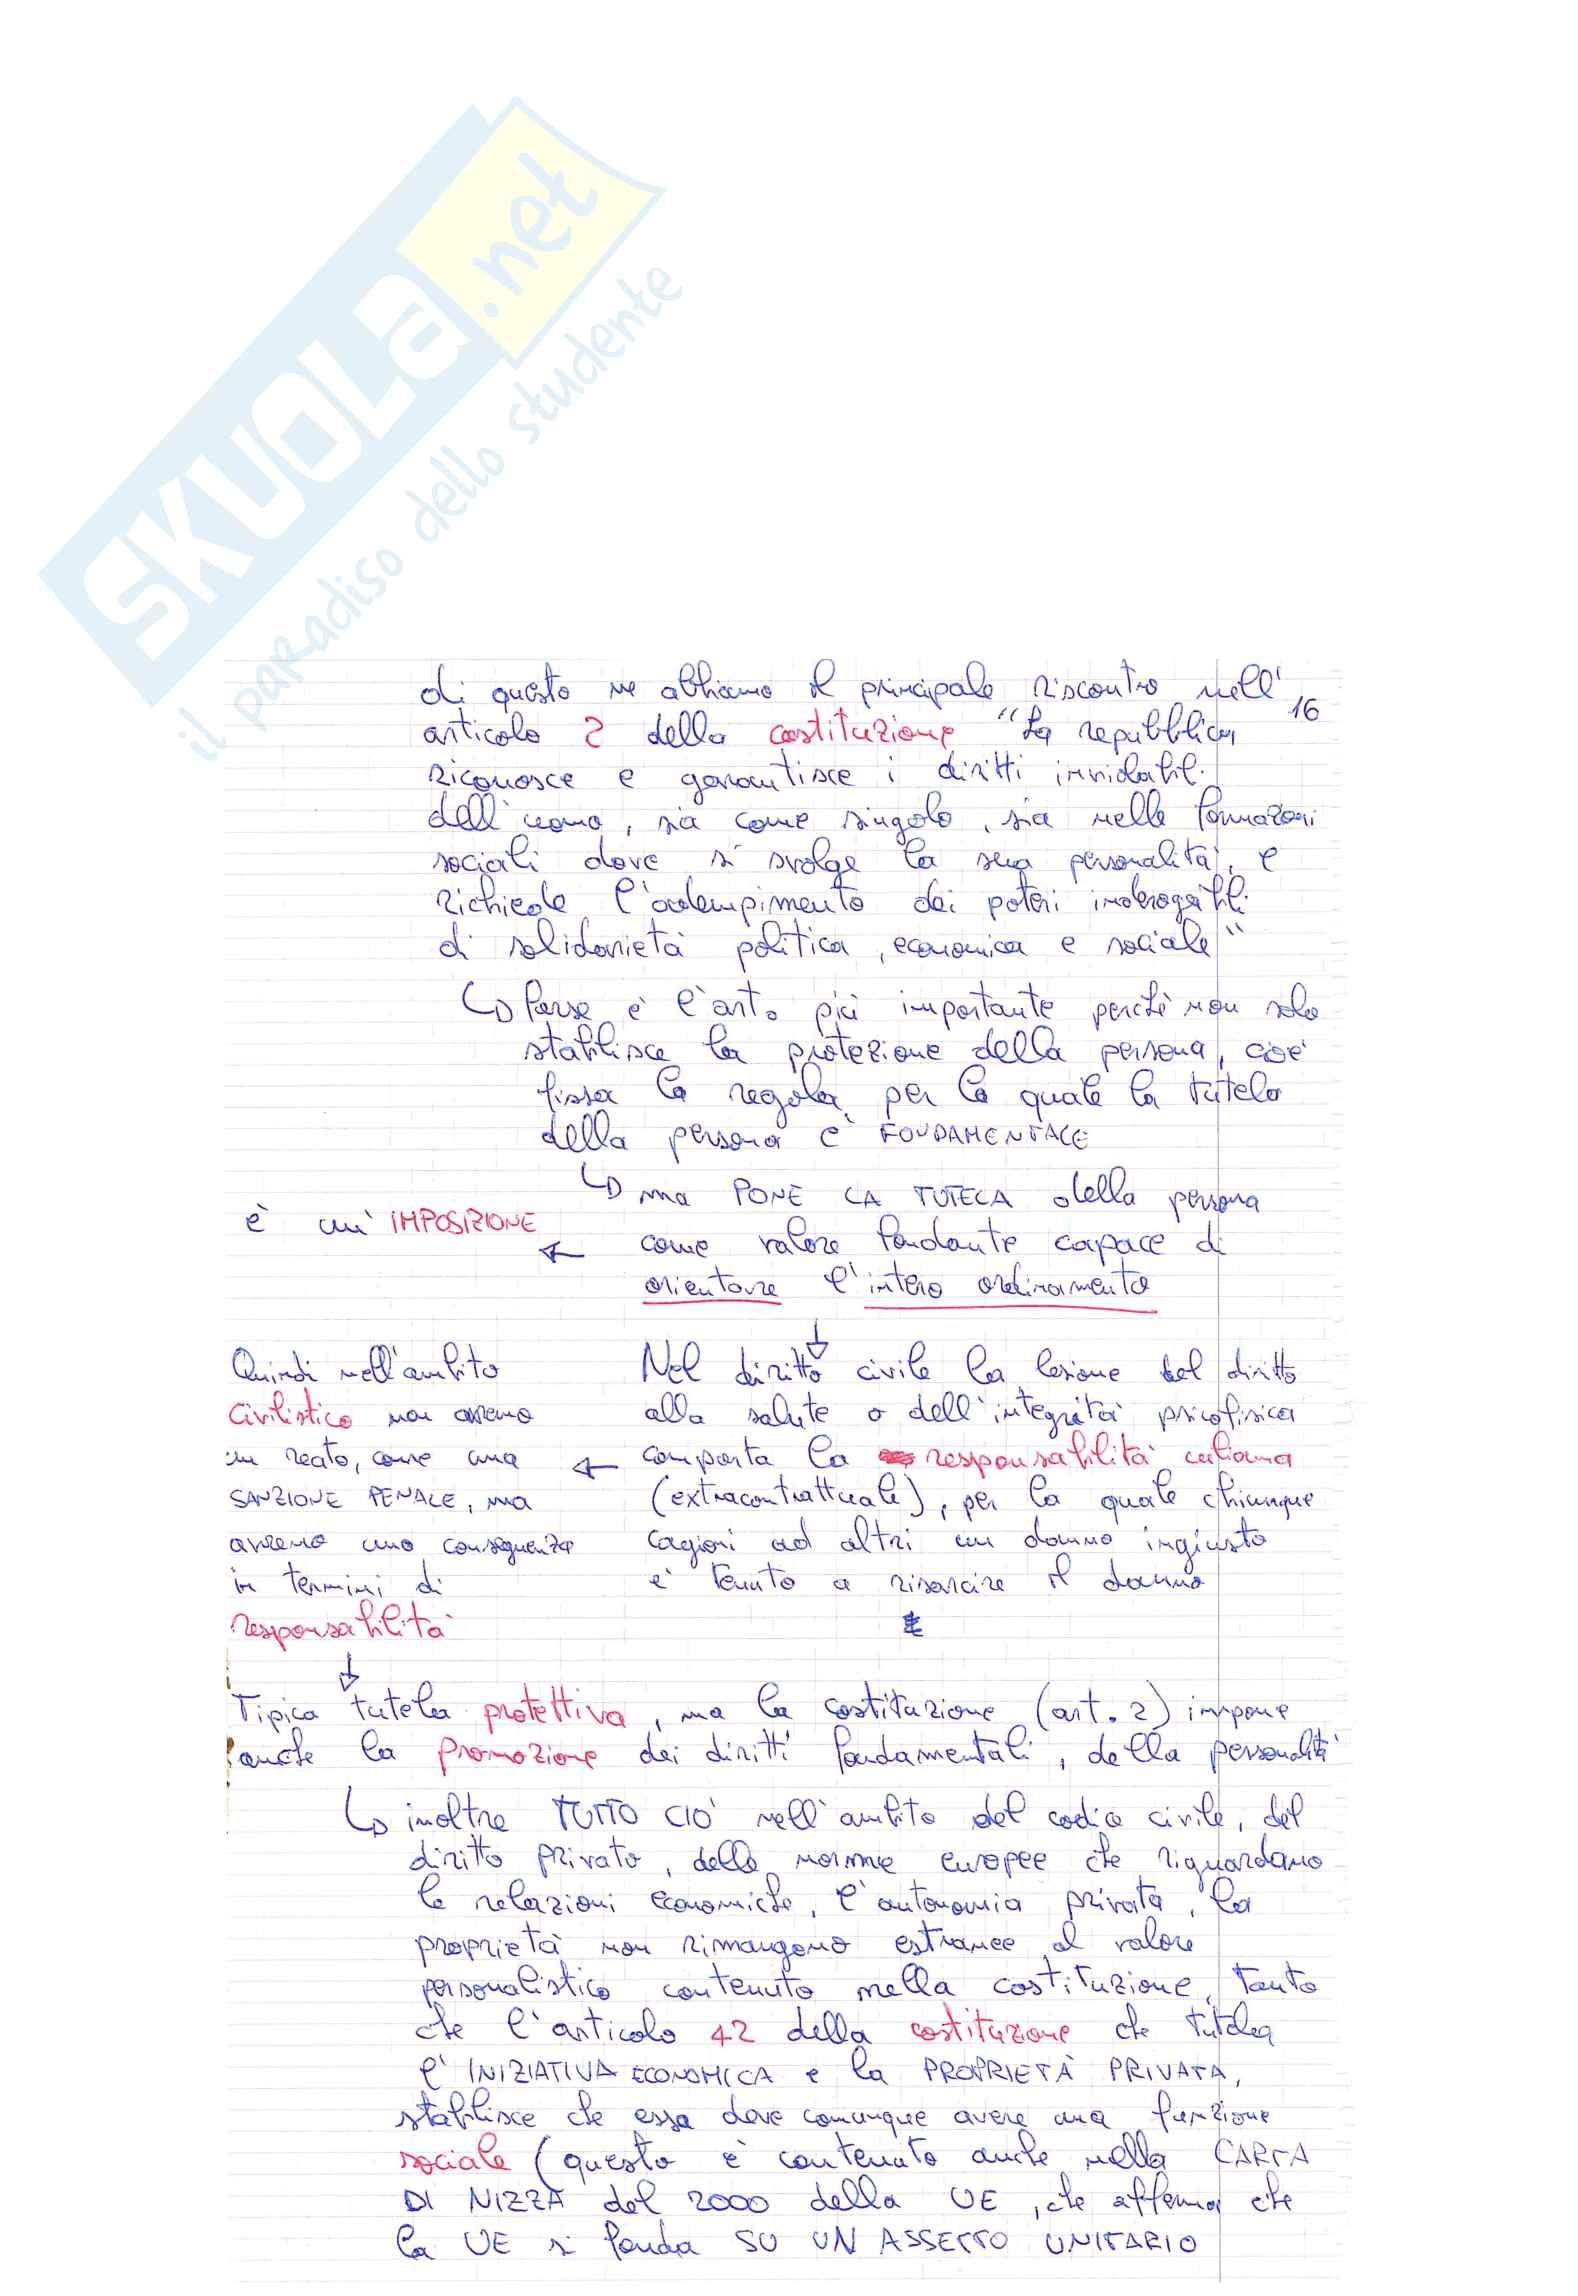 SKUOLa.net
il paradiso dello studente
di questo ne abbiamo il principale riscontro nell'
16
articolo 2 della costituzione "La repubblica
riconosce e garantisce i diritti inviolabili
dell'uomo, sia come singolo, sia nelle formazioni
sociali dove si svolge la sua personalità, e
richiede l'adempimento dei poteri inderogabili
di solidarietà politica, economica e sociale"
↳ Forse è l'art. più importante perchè non solo
stabilisce la protezione della persona, cioè
fissa la regola per la quale la tutela
della persona è FONDAMENTALE
↳ ma PONE LA TUTELA della persona
come valore fondante capace di
orientare l'intero ordinamento
è un'IMPOSIZIONE ←
↓
Nel diritto civile la lesione del diritto
alla salute o dell'integrità psicofisica
comporta la responsabilità aquiliana
(extracontrattuale), per la quale chiunque
cagioni ad altri un danno ingiusto
è tenuto a risarcire il danno
←
Quindi nell'ambito
civilistico non avremo
un reato, come una
SANZIONE PENALE, ma
avremo una conseguenza
in termini di
responsabilità
↓
Tipica tutela protettiva, ma la costituzione (art. 2) impone
anche la promozione dei diritti fondamentali, della personalità
↳ inoltre TUTTO CIO' nell'ambito del codice civile, del
diritto privato, delle norme europee che riguardano
le relazioni economiche, l'autonomia privata, la
proprietà non rimangono estranee al valore
personalistico contenuto nella costituzione, tanto
che l'articolo 42 della costituzione che tutela
l'INIZIATIVA ECONOMICA e la PROPRIETÀ PRIVATA,
stabilisce che essa deve comunque avere una funzione
sociale (questo è contenuto anche nella CARTA
DI NIZZA del 2000 della UE, che afferma che
la UE si fonda SU UN ASSETTO UNITARIO